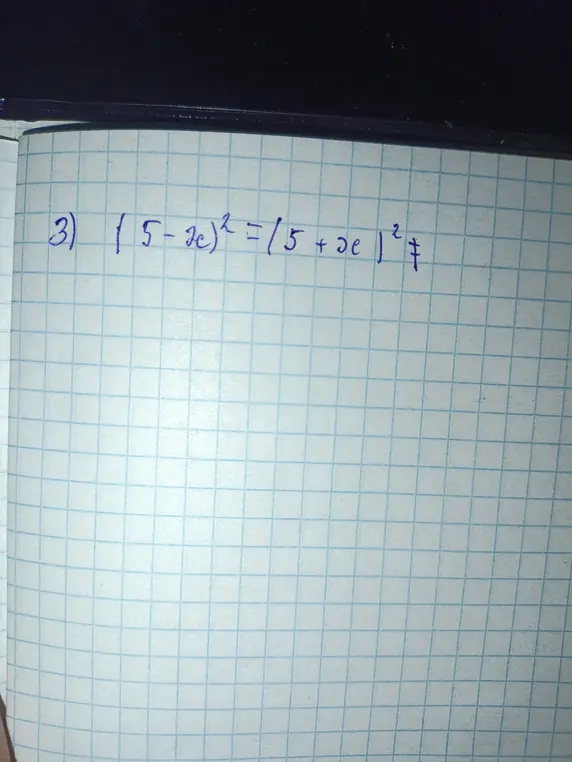 3) (5-x)² = (5+x)²